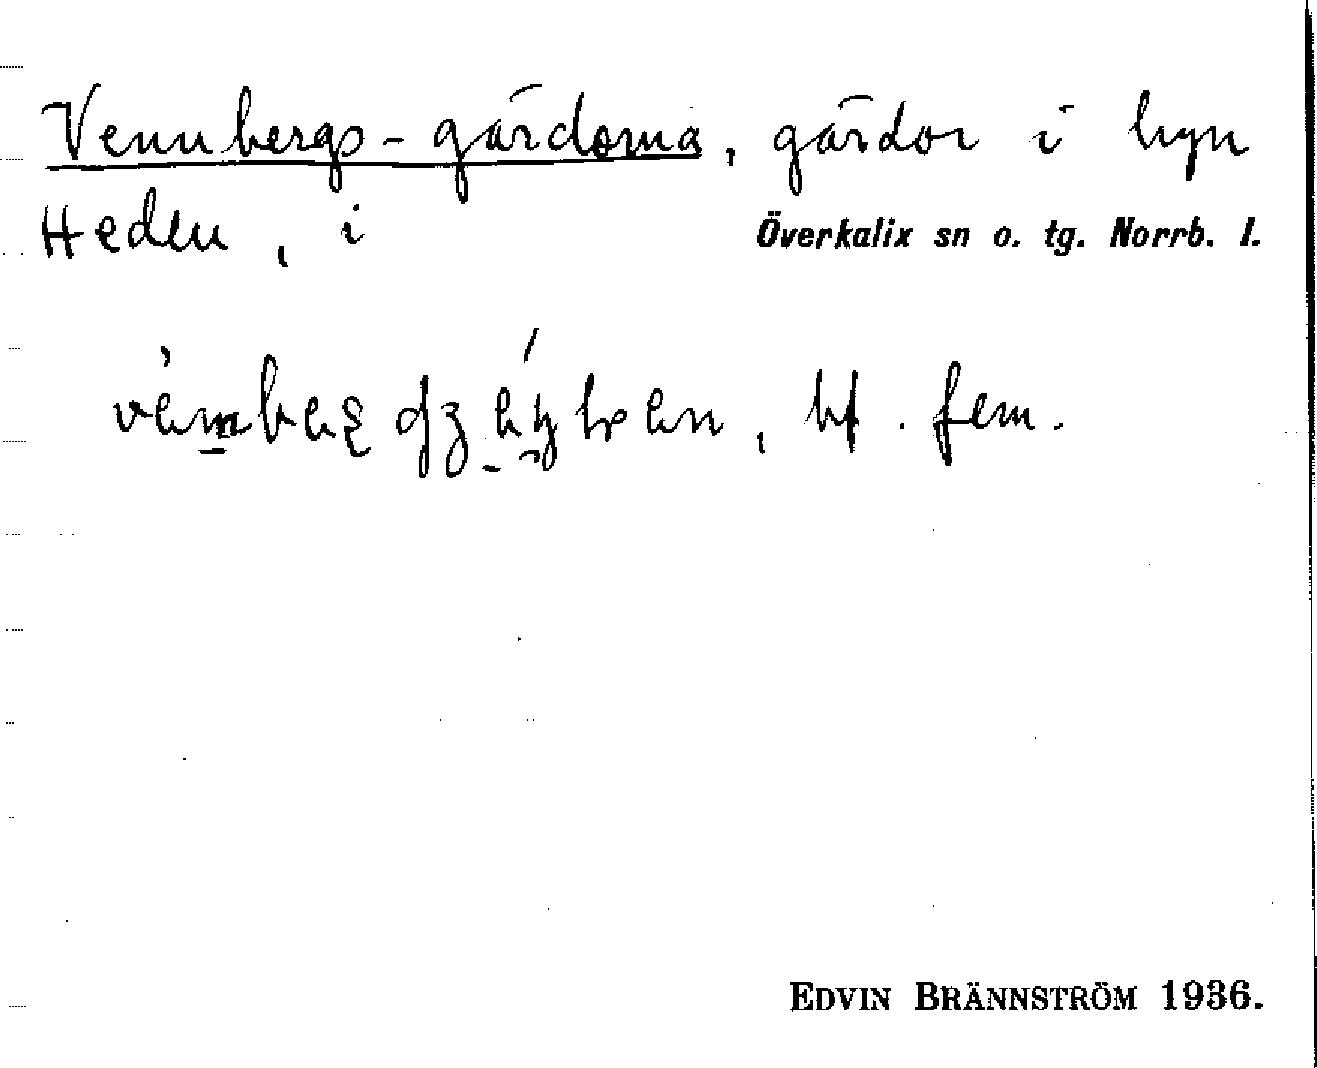 Vennbergs-gårdorna, gårdor i byn
Heden, i Överkalix sn o. tg. Norrb. l.
bf. fem.
EDVIN BRÄNNSTRÖM 1936.